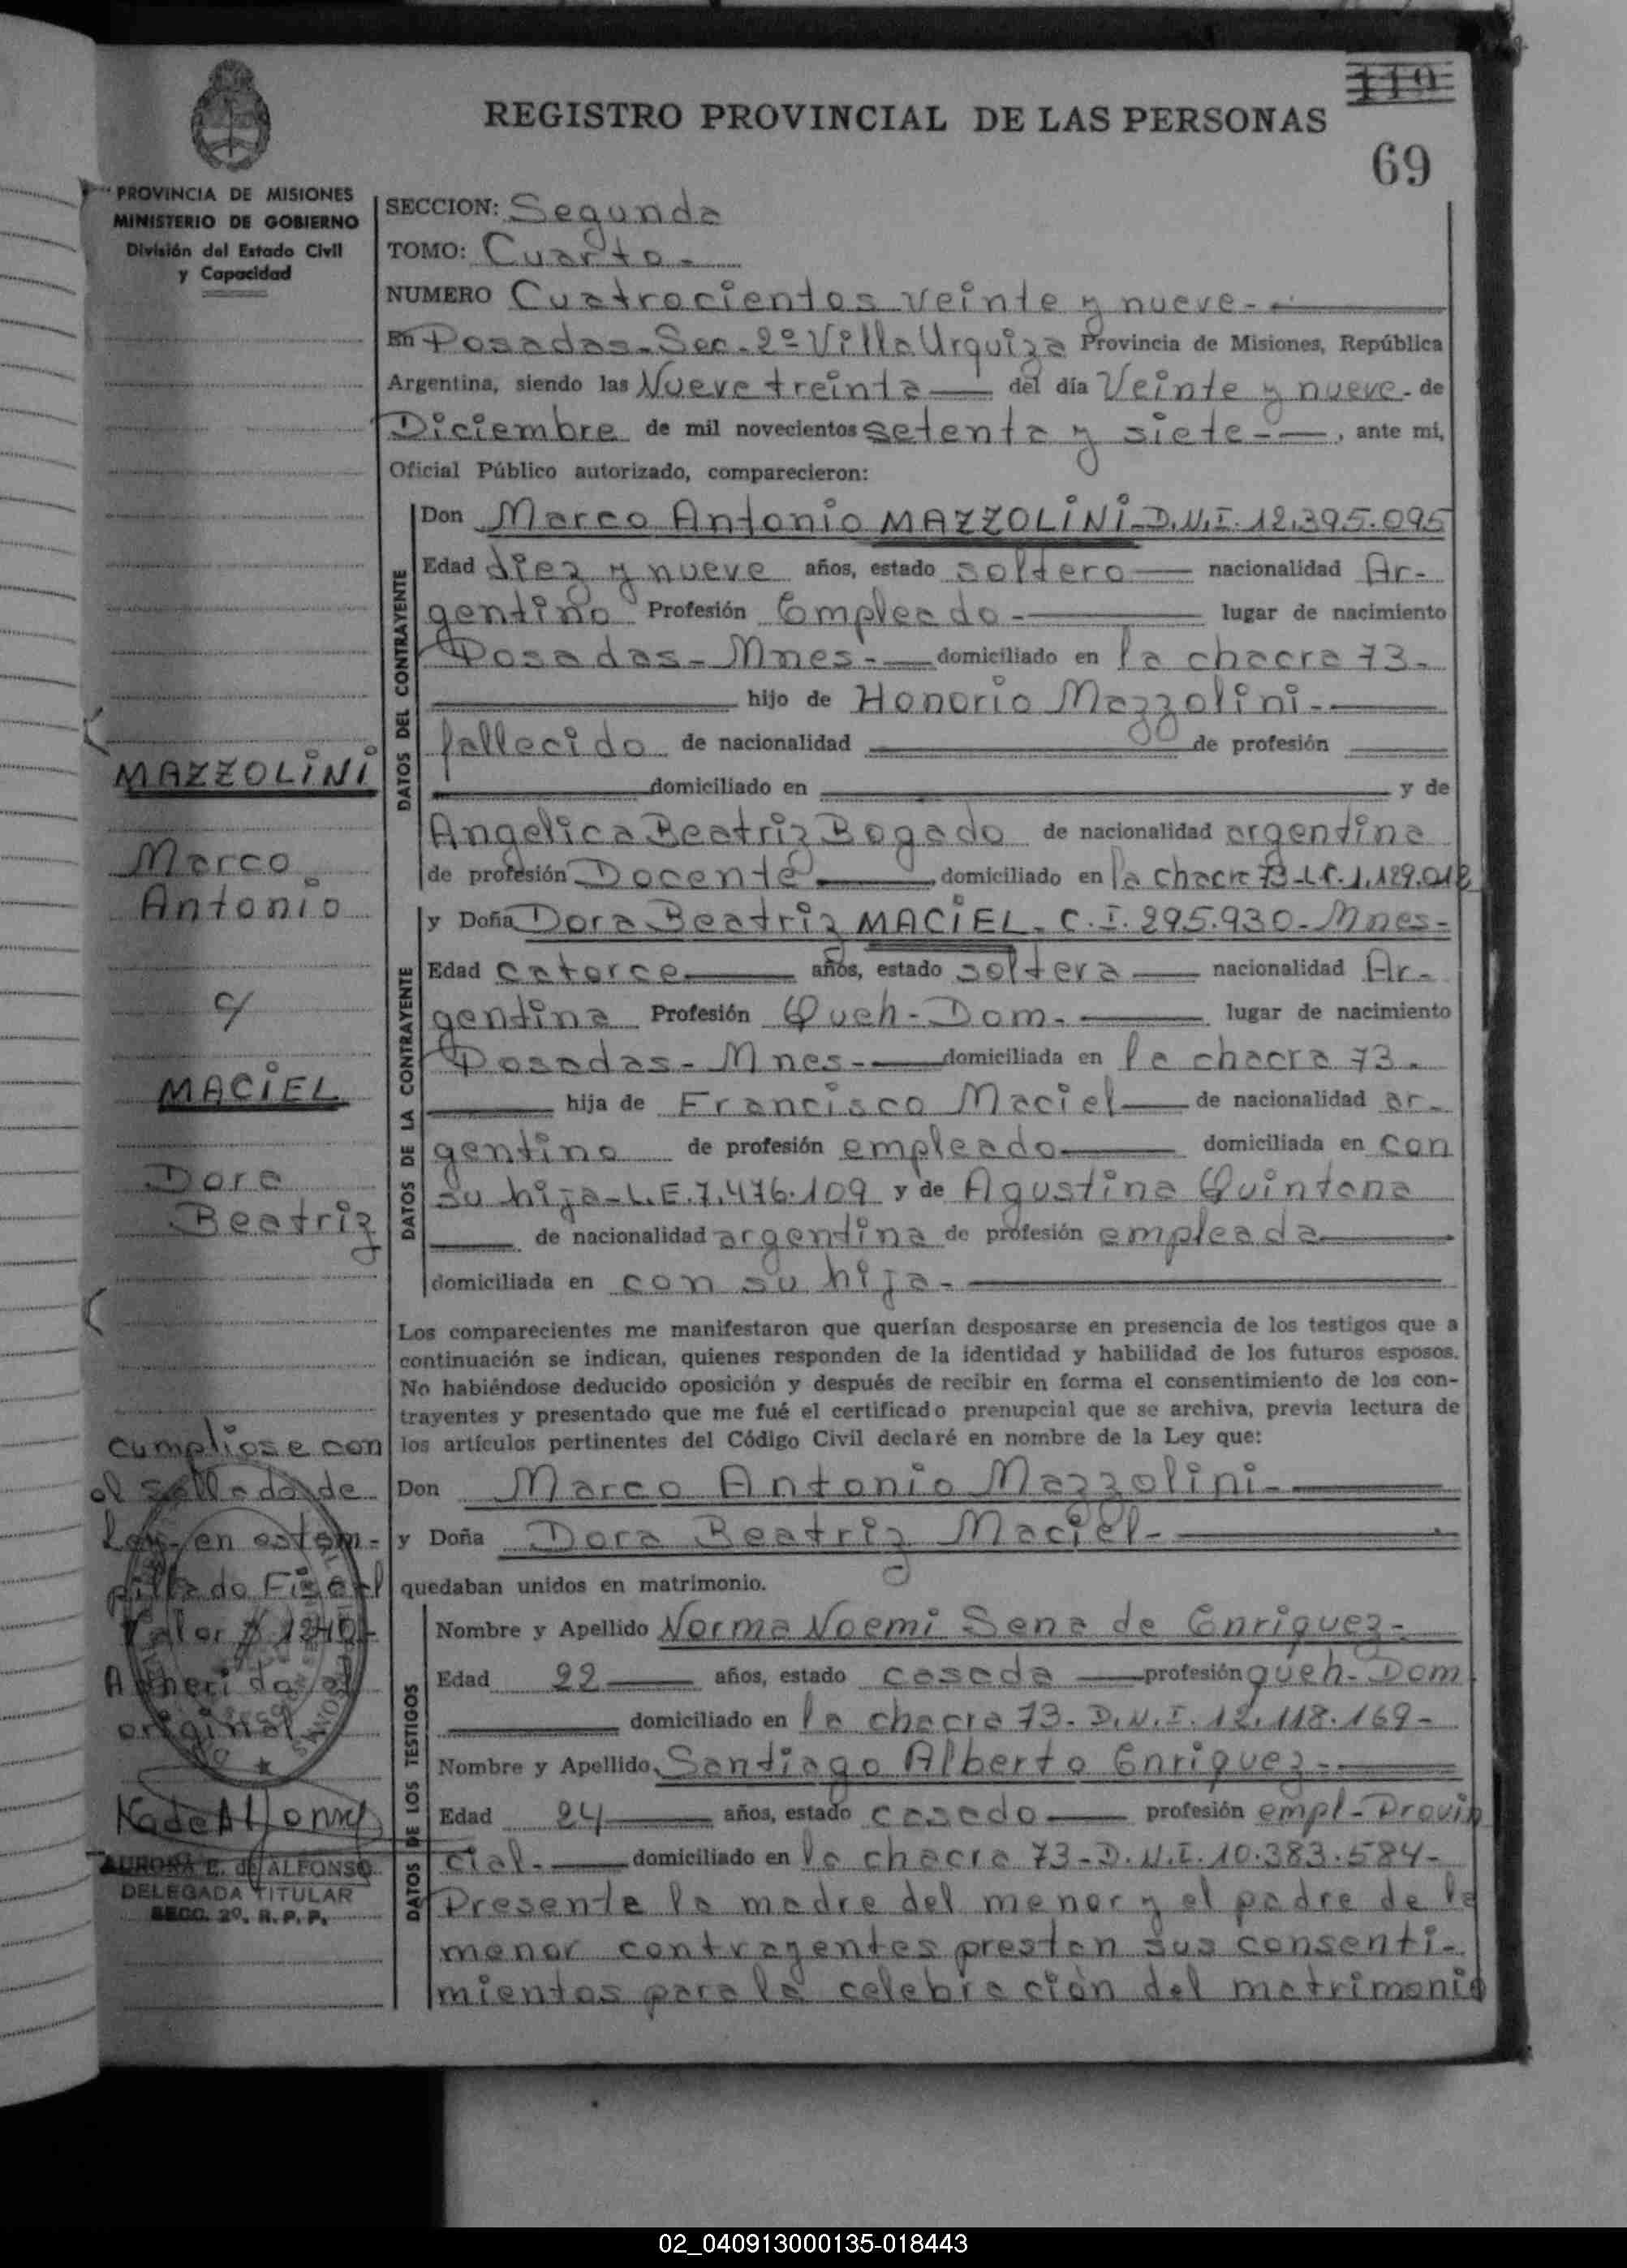 119
REGISTRO PROVINCIAL DE LAS PERSONAS
69
PROVINCIA DE MISIONES
MINISTERIO DE GOBIERNO
División del Estado Civil
y Capacidad
SECCION: Segunda
TOMO: Cuarto-
NUMERO Cuatrocientos veinte y nueve-
En Posadas-Sec-2º Villa Urquiza Provincia de Misiones, República
Argentina, siendo las Nueve treinta del día Veinte y nueve- de
Diciembre de mil novecientos setenta y siete-, ante mi,
Oficial Público autorizado, comparecieron:
DATOS DEL CONTRAYENTE
Don Marco Antonio MAZZOLINI-D.N.I. 12.395.095
Edad diez y nueve años, estado soltero nacionalidad Ar-
gentino Profesión Empleado- lugar de nacimiento
Posadas-Mnes- domiciliado en la chacra 73-
hijo de Honorio Mazzolini-
fallecido de nacionalidad de profesión
domiciliado en y de
Angelica Beatriz Bogado de nacionalidad argentina
de profesión Docente, domiciliado en la chacra 73-L.C. 1.129.012
MAZZOLINI
Marco
Antonio
c/
MACIEL
Dora
Beatriz
DATOS DE LA CONTRAYENTE
y Doña Dora Beatriz MACIEL- C.I. 295.930-Mnes-
Edad catorce años, estado soltera nacionalidad Ar-
gentina Profesión Queh-Dom- lugar de nacimiento
Posadas-Mnes- domiciliada en la chacra 73-
hija de Francisco Maciel de nacionalidad ar-
gentino de profesión empleado domiciliada en con
su hija-L.E. 7.476.109 y de Agustina Quintana
de nacionalidad argentina de profesión empleada
domiciliada en con su hija-
Los comparecientes me manifestaron que querían desposarse en presencia de los testigos que a
continuación se indican, quienes responden de la identidad y habilidad de los futuros esposos.
No habiéndose deducido oposición y después de recibir en forma el consentimiento de los con-
trayentes y presentado que me fué el certificado prenupcial que se archiva, previa lectura de
los artículos pertinentes del Código Civil declaré en nombre de la Ley que:
Don Marco Antonio Mazzolini-
y Doña Dora Beatriz Maciel-
quedaban unidos en matrimonio.
cumpliose con
el sellado de
Ley-en estam-
pillado Fiscal
Valor $ 1240-
Adherido al
original
AURORA E. de ALFONSO
DELEGADA TITULAR
SECC. 2º. R. P. P.
DATOS DE LOS TESTIGOS
Nombre y Apellido Norma Noemi Sena de Enriquez-
Edad 22 años, estado casada profesión queh-Dom
domiciliado en la chacra 73- D.N.I. 12.118.169-
Nombre y Apellido Santiago Alberto Enriquez-
Edad 24 años, estado casado profesión empl-Provin
cial- domiciliado en la chacra 73-D.N.I. 10.383.584-
Presente la madre del menor y el padre de la
menor contrayentes prestan sus consenti-
mientos para la celebración del matrimonio
02_040913000135-018443